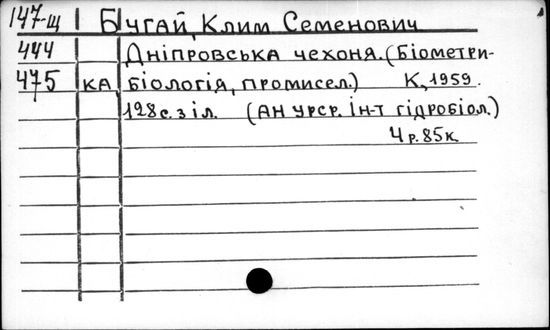 147-щ Бугай, Клим Семенович
444 Дніпровська чехоня. (Біометри-
475 КА біологія, промисел.) К, 1959.
128 с. з іл. (АН УРСР. Ін-т гідробіол.)
4 р. 85 к.